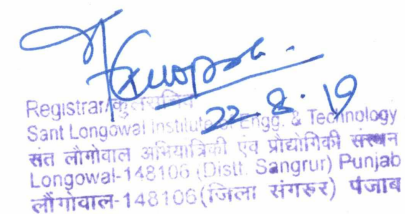 22-8-19
Registrar/कुलसचिव
Sant Longowal Institute of Engg. & Technology
संत लौंगोवाल अभियांत्रिकी एवं प्रौद्योगिकी संस्थान
Longowal-148106 (Distt. Sangrur) Punjab
लौंगोवाल-148106 (जिला संगरूर) पंजाब